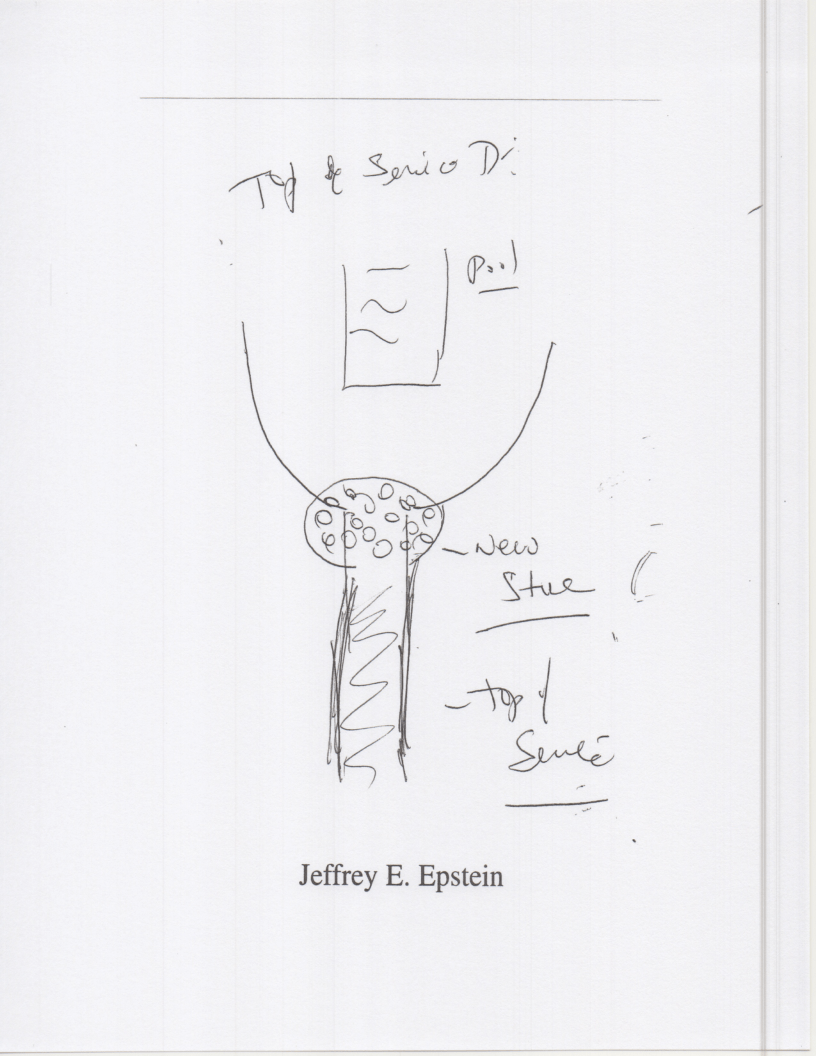 Top of Service Dr.
Pool
- New
Stone
- top of
Service
Jeffrey E. Epstein